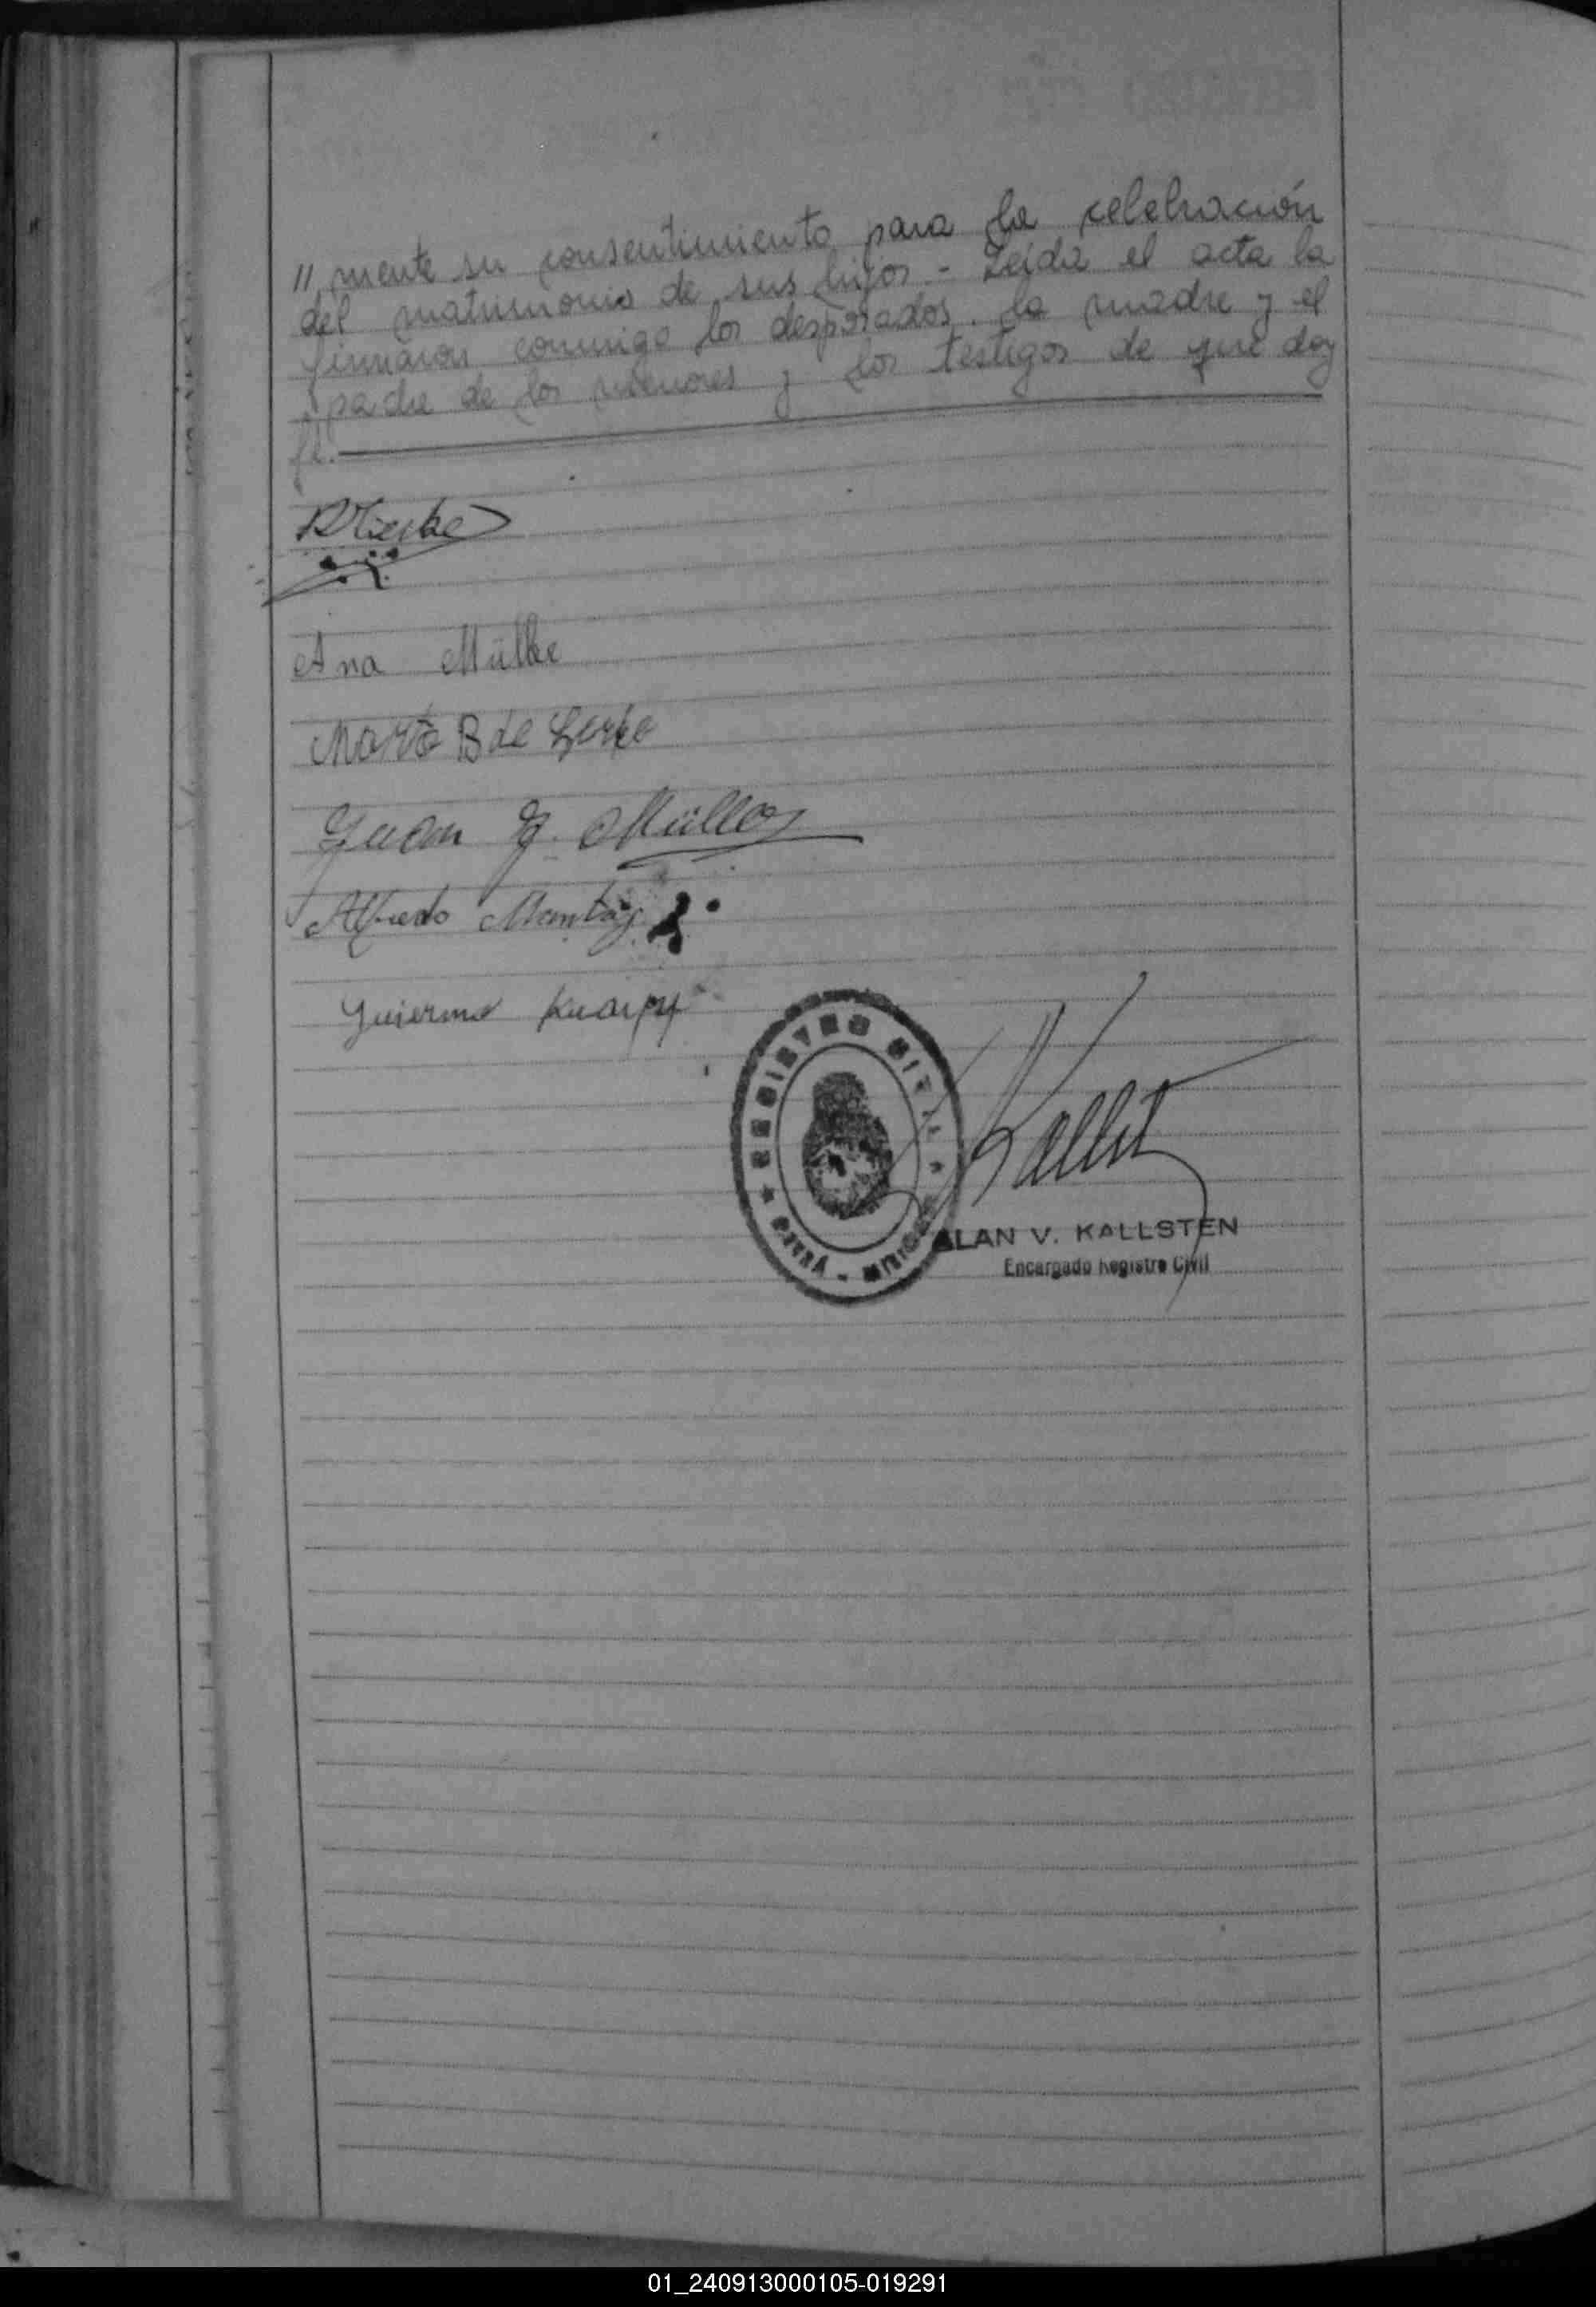 // mente su consentimiento para la celebración
del matrimonio de sus hijos - Leída el acta la
firmaron conmigo los desposados. la madre y el
padre de los menores y los testigos de que doy
fé.
Ana
Marta B de
Juan
Alfredo
REGISTRO CIVIL
OBERÁ - MISIONES
ALAN V. KALLSTEN
Encargado Registro Civil
01_240913000105-019291